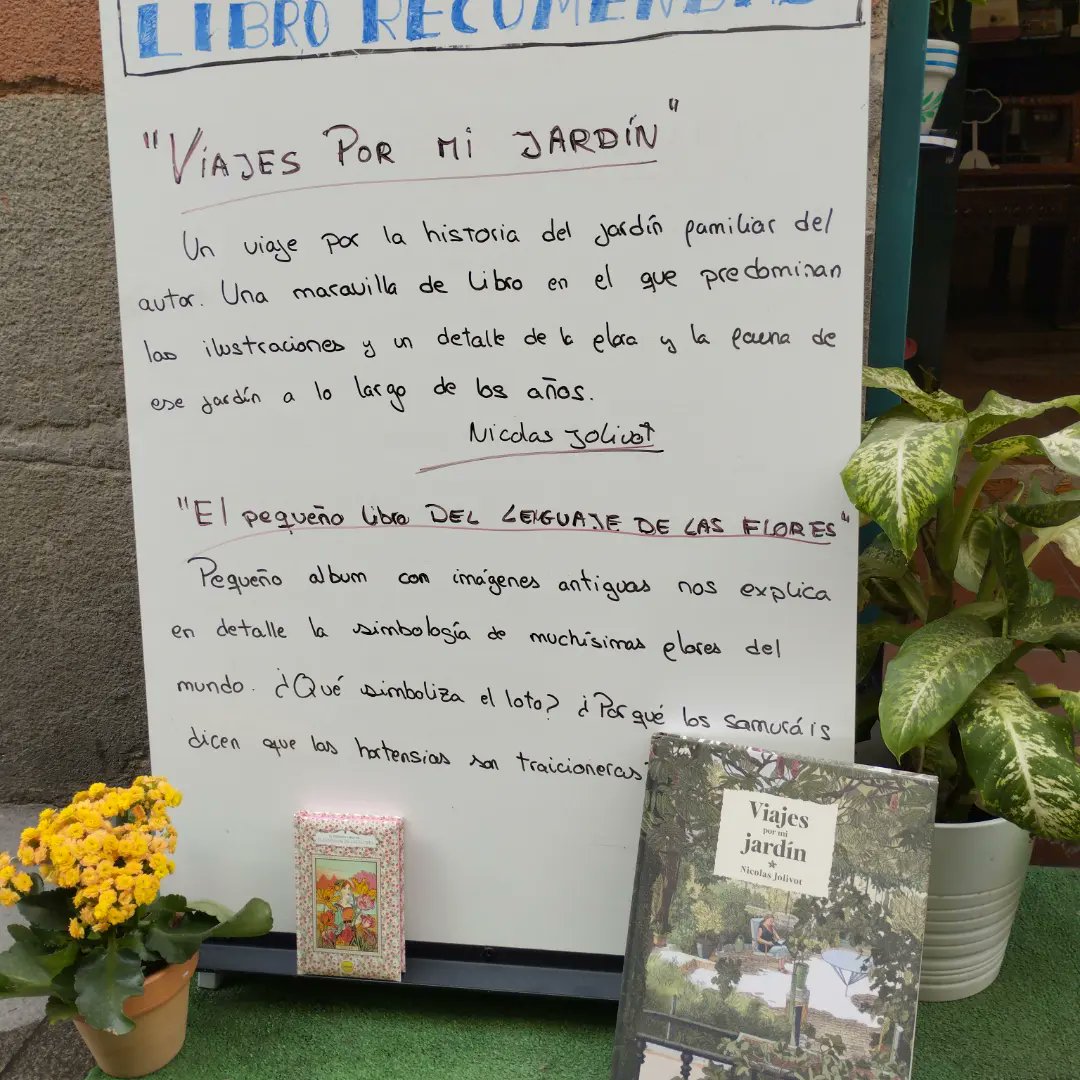 LIBRO RECOMENDAD
"VIAJES POR MI JARDÍN"
Un viaje por la historia del jardín familiar del
autor. Una maravilla de libro en el que predominan
las ilustraciones y un detalle de la flora y la fauna de
ese jardín a lo largo de los años.
Nicolas Jolivot
"El pequeño libro DEL LENGUAJE DE LAS FLORES"
Pequeño album con imágenes antiguas nos explica
en detalle la simbología de muchísimas flores del
mundo. ¿Qué simboliza el loto? ¿Por qué los samuráis
dicen que las hortensias son traicioneras
Viajes
por mi
jardín
Nicolas Jolivot